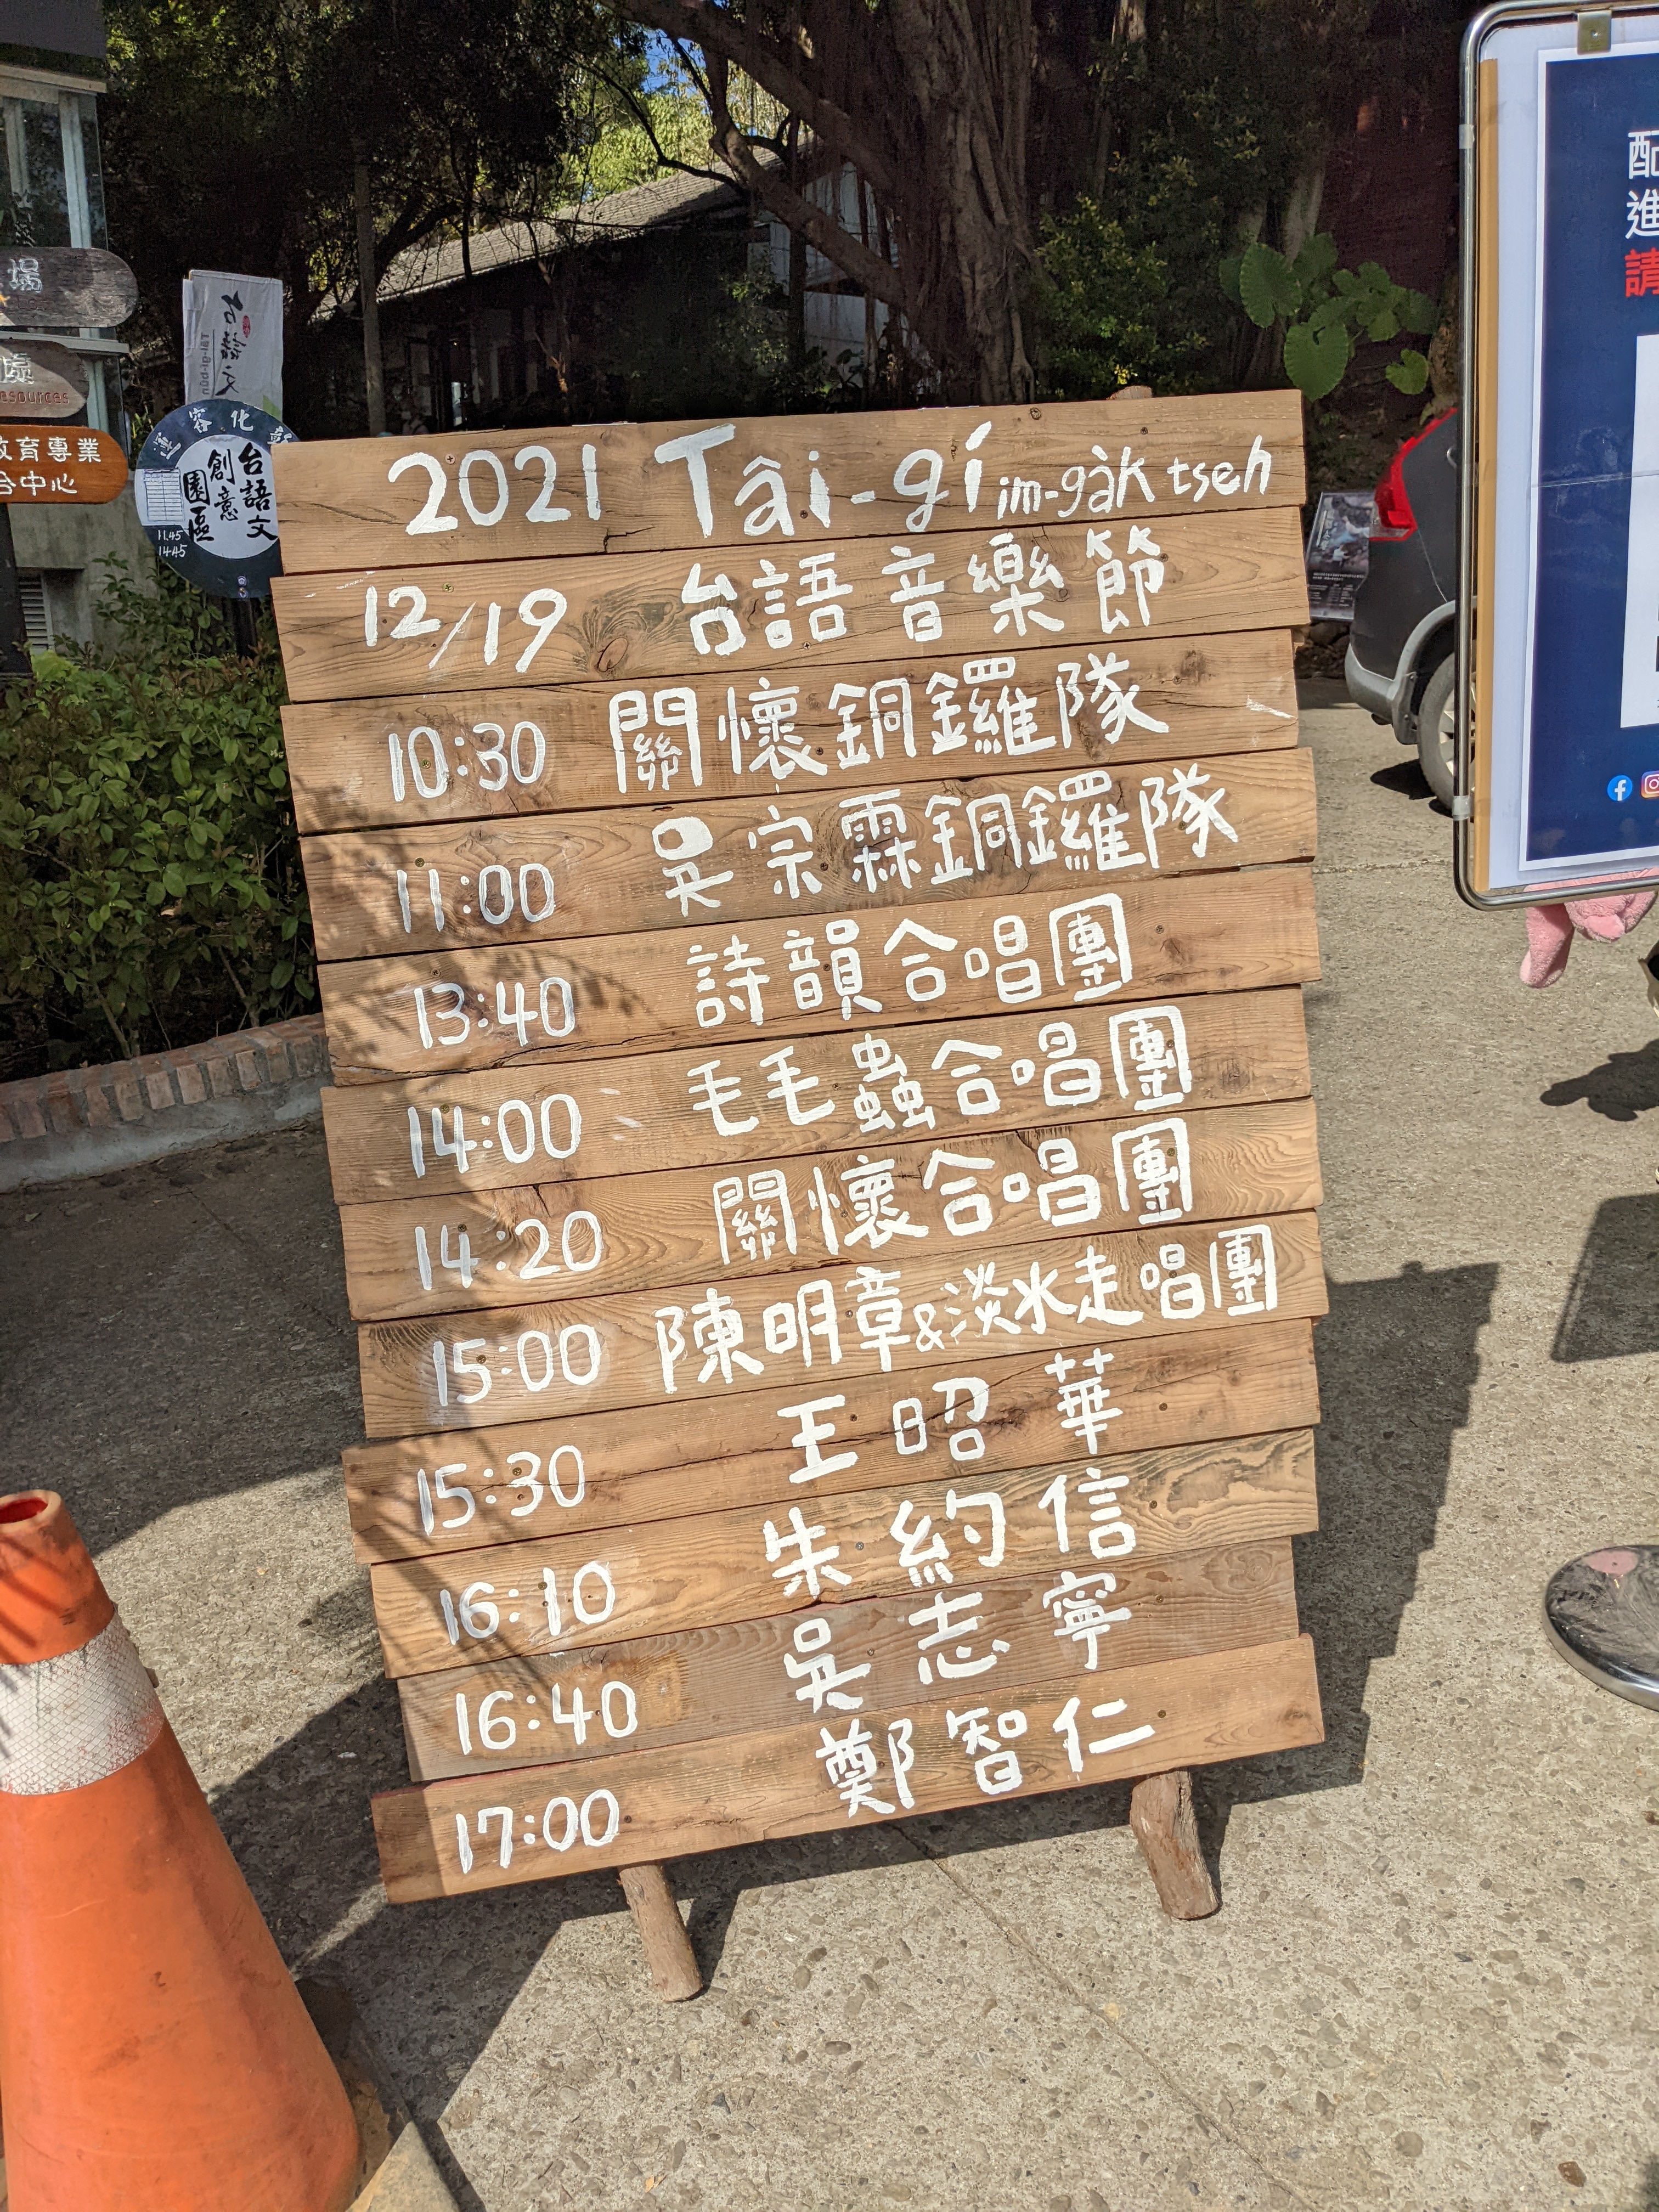 2021 Tâi-gí im-ga̍k tseh
12/19 台語音樂節
10:30 關懷銅鑼隊
11:00 吳宗霖銅鑼隊
13:40 詩韻合唱團
14:00 毛毛蟲合唱團
14:20 關懷合唱團
15:00 陳明章&淡水走唱團
15:30 王昭華
16:10 朱約信
16:40 吳志寧
17:00 鄭智仁
場
處
esources
教育專業
合中心
台語文
台語文
創意
園區
11.45
14.45
配
進
請